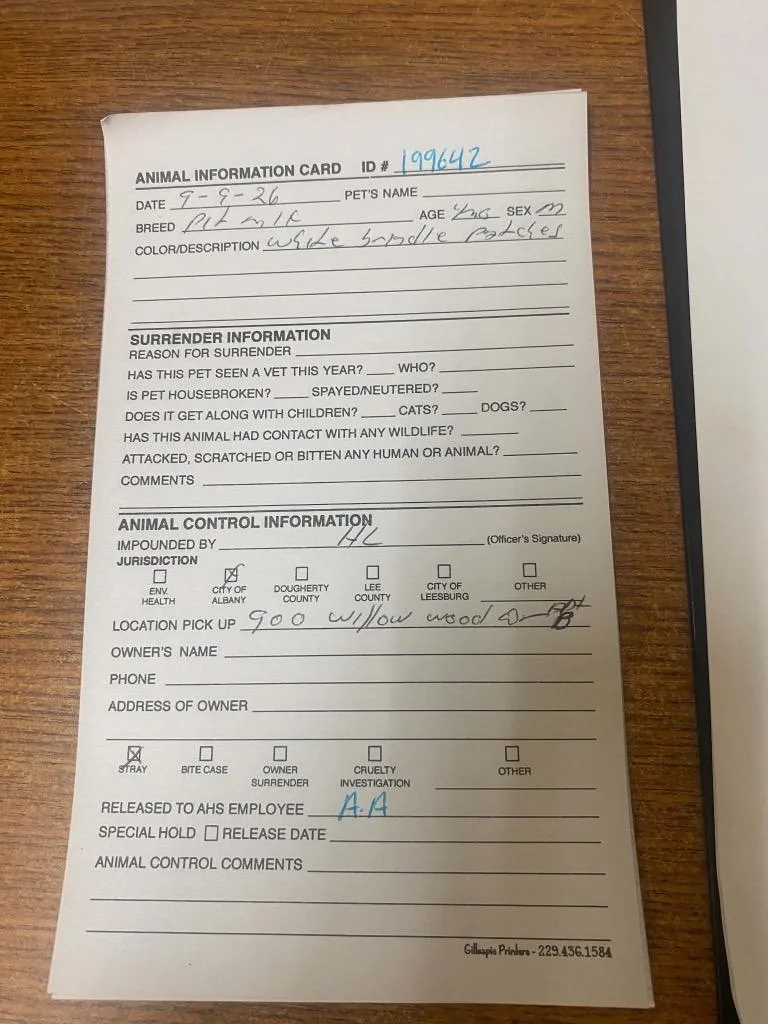 ANIMAL INFORMATION CARD ID # 199642
DATE 9-9-26 PET'S NAME
BREED Pit mix AGE SEX M
COLOR/DESCRIPTION white brindle patches
SURRENDER INFORMATION
REASON FOR SURRENDER
HAS THIS PET SEEN A VET THIS YEAR? WHO?
IS PET HOUSEBROKEN? SPAYED/NEUTERED?
DOES IT GET ALONG WITH CHILDREN? CATS? DOGS?
HAS THIS ANIMAL HAD CONTACT WITH ANY WILDLIFE?
ATTACKED, SCRATCHED OR BITTEN ANY HUMAN OR ANIMAL?
COMMENTS
ANIMAL CONTROL INFORMATION
IMPOUNDED BY (Officer's Signature)
JURISDICTION
ENV. HEALTH CITY OF ALBANY DOUGHERTY COUNTY LEE COUNTY CITY OF LEESBURG OTHER
LOCATION PICK UP 900 willow wood Dr Apt B
OWNER'S NAME
PHONE
ADDRESS OF OWNER
STRAY BITE CASE OWNER SURRENDER CRUELTY INVESTIGATION OTHER
RELEASED TO AHS EMPLOYEE A.A
SPECIAL HOLD RELEASE DATE
ANIMAL CONTROL COMMENTS
Gillespie Printers - 229.436.1584